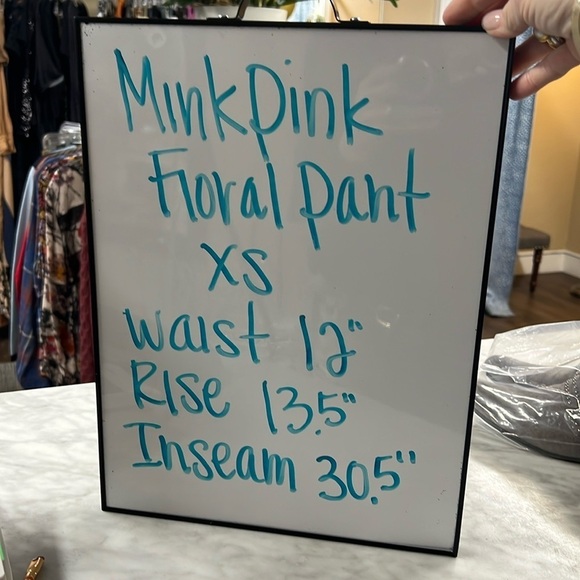 MinkPink
Floral Pant
XS
Waist 12"
Rise 13.5"
Inseam 30.5"